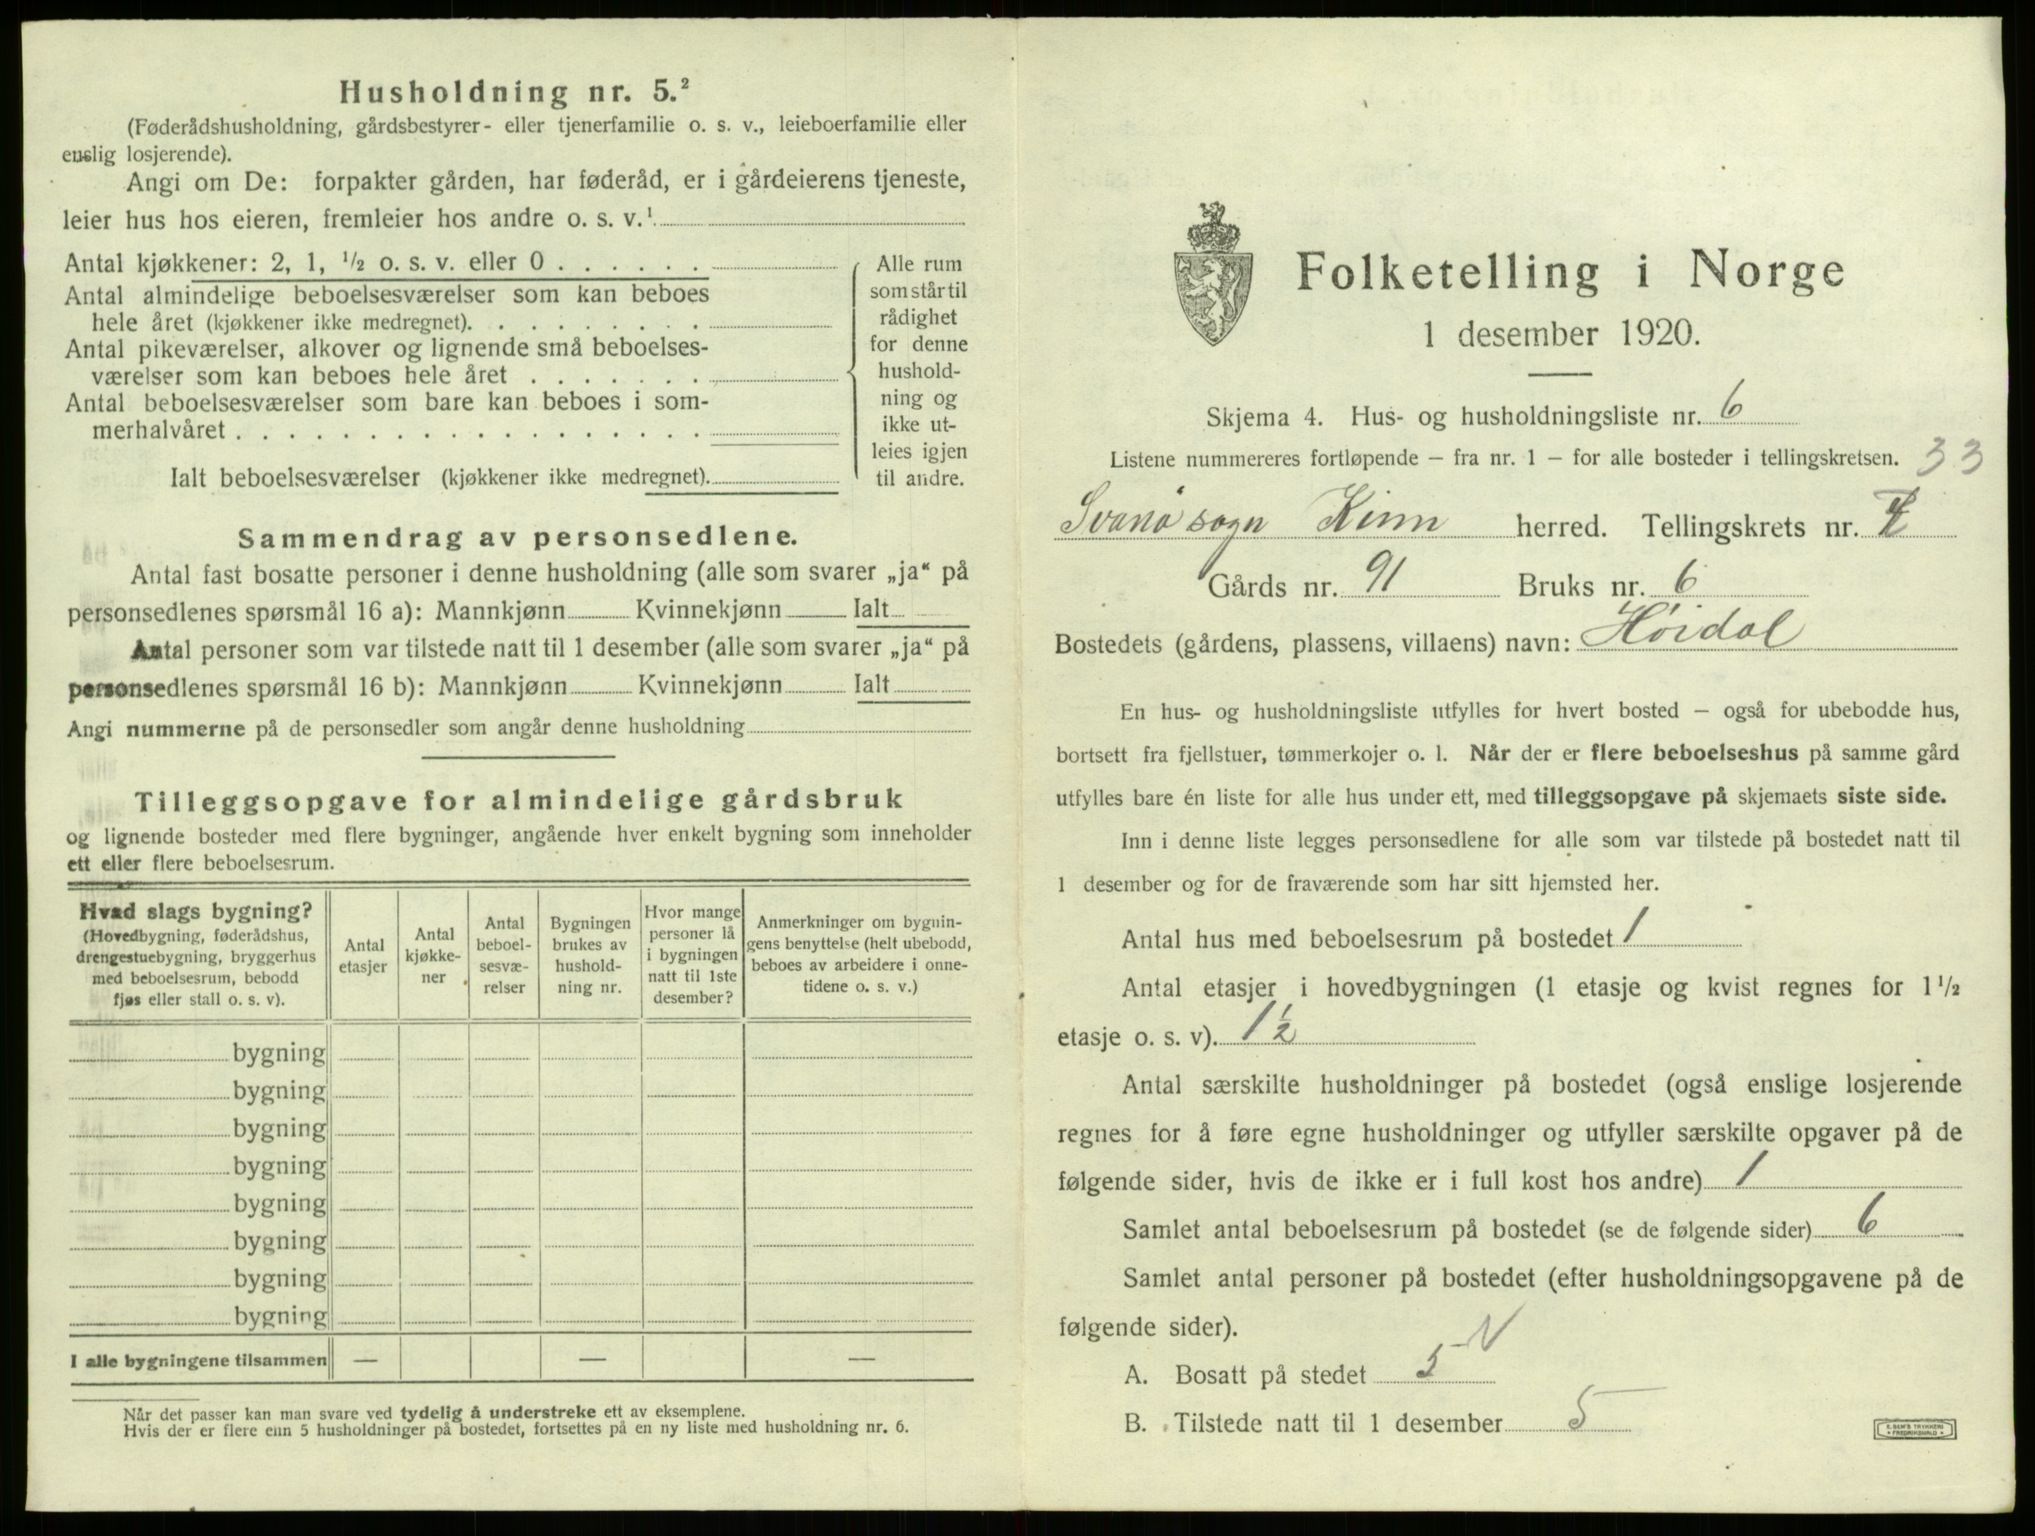 Husholdning nr. 5.²
(Føderådshusholdning, gårdsbestyrer- eller tjenerfamilie o. s. v., leieboerfamilie eller
enslig losjerende).
Angi om De: forpakter gården, har føderåd, er i gårdeierens tjeneste,
leier hus hos eieren, fremleier hos andre o. s. v.¹
Antal kjøkkener: 2, 1, ½ o. s. v. eller 0 . . . . . .
Antal almindelige beboelsesværelser som kan beboes
hele året (kjøkkener ikke medregnet). . . . . . . . .
Antal pikeværelser, alkover og lignende små beboelses-
værelser som kan beboes hele året . . . . . . .
Antal beboelsesværelser som bare kan beboes i som-
merhalvåret . . . . . . . . . . . . . . . . . .
Ialt beboelsesværelser (kjøkkener ikke medregnet).
Alle rum
som står til
rådighet
for denne
hushold-
ning og
ikke ut-
leies igjen
til andre.
Sammendrag av personsedlene.
Antal fast bosatte personer i denne husholdning (alle som svarer „ja“ på
personsedlenes spørsmål 16 a): Mannkjønn Kvinnekjønn Ialt
Antal personer som var tilstede natt til 1 desember (alle som svarer „ja“ på
personsedlenes spørsmål 16 b): Mannkjønn Kvinnekjønn Ialt
Angi nummerne på de personsedler som angår denne husholdning
Tilleggsopgave for almindelige gårdsbruk
og lignende bosteder med flere bygninger, angående hver enkelt bygning som inneholder
ett eller flere beboelsesrum.
Hvad slags bygning?
(Hovedbygning, føderådshus,
drengestuebygning, bryggerhus
med beboelsesrum, bebodd
fjøs eller stall o. s. v).
Antal
etasjer
Antal
kjøkke-
ner
Antal
beboel-
sesvæ-
relser
Bygningen
brukes av
hushold-
ning nr.
Hvor mange
personer lå
i bygningen
natt til 1ste
desember?
Anmerkninger om bygnin-
gens benyttelse (helt ubebodd,
beboes av arbeidere i onne-
tidene o. s. v.)
bygning
bygning
bygning
bygning
bygning
bygning
bygning
bygning
I alle bygningene tilsammen — — —
Når det passer kan man svare ved tydelig å understreke ett av eksemplene.
Hvis der er flere enn 5 husholdninger på bostedet, fortsettes på en ny liste med husholdning nr. 6.
Folketelling i Norge
1 desember 1920.
Skjema 4. Hus- og husholdningsliste nr. 6
Listene nummereres fortløpende – fra nr. 1 – for alle bosteder i tellingskretsen. 33
Svanø sogn Kinn herred. Tellingskrets nr. 4
Gårds nr. 91 Bruks nr. 6
Bostedets (gårdens, plassens, villaens) navn: Høidal
En hus- og husholdningsliste utfylles for hvert bosted – også for ubebodde hus,
bortsett fra fjellstuer, tømmerkojer o. l. Når der er flere beboelseshus på samme gård
utfylles bare én liste for alle hus under ett, med tilleggsopgave på skjemaets siste side.
Inn i denne liste legges personsedlene for alle som var tilstede på bostedet natt til
1 desember og for de fraværende som har sitt hjemsted her.
Antal hus med beboelsesrum på bostedet 1
Antal etasjer i hovedbygningen (1 etasje og kvist regnes for 1½
etasje o. s. v). 1½
Antal særskilte husholdninger på bostedet (også enslige losjerende
regnes for å føre egne husholdninger og utfyller særskilte opgaver på de
følgende sider, hvis de ikke er i full kost hos andre) 1
Samlet antal beboelsesrum på bostedet (se de følgende sider) 6
Samlet antal personer på bostedet (efter husholdningsopgavene på de
følgende sider).
A. Bosatt på stedet 5
B. Tilstede natt til 1 desember 5